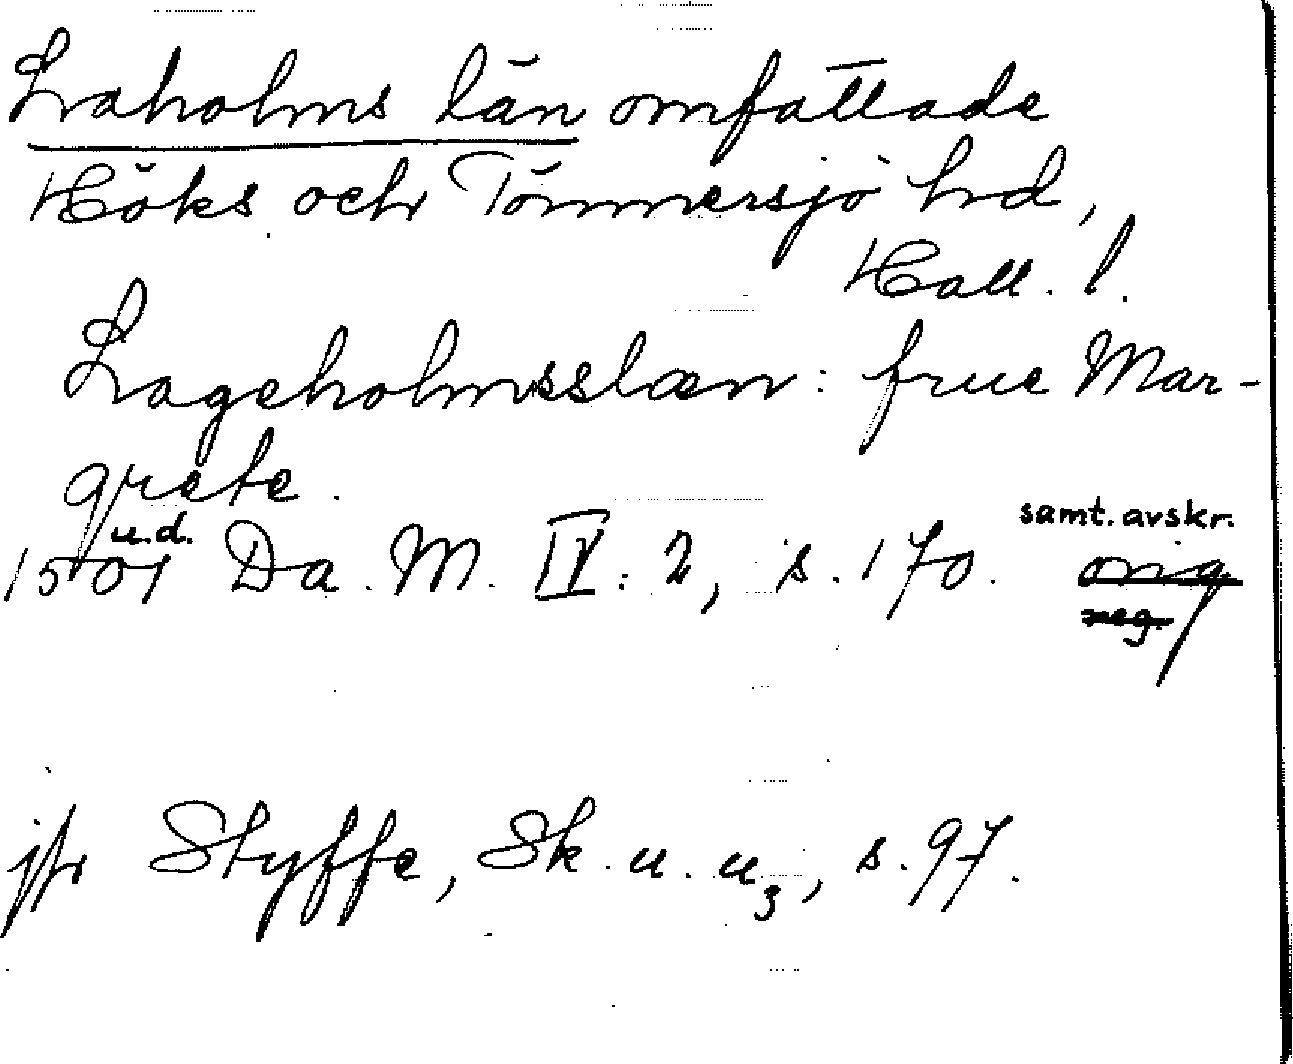 Laholms län omfattade
Höks och Tönnersjö hrd,
Hall. l.
Lageholmsslæn: frue Mar-
grete.
u.d. samt. avskr.
1501 Da. M. IV: 2, s. 170. orig
reg.
jfr Styffe, Sk. u. u3, s. 97.